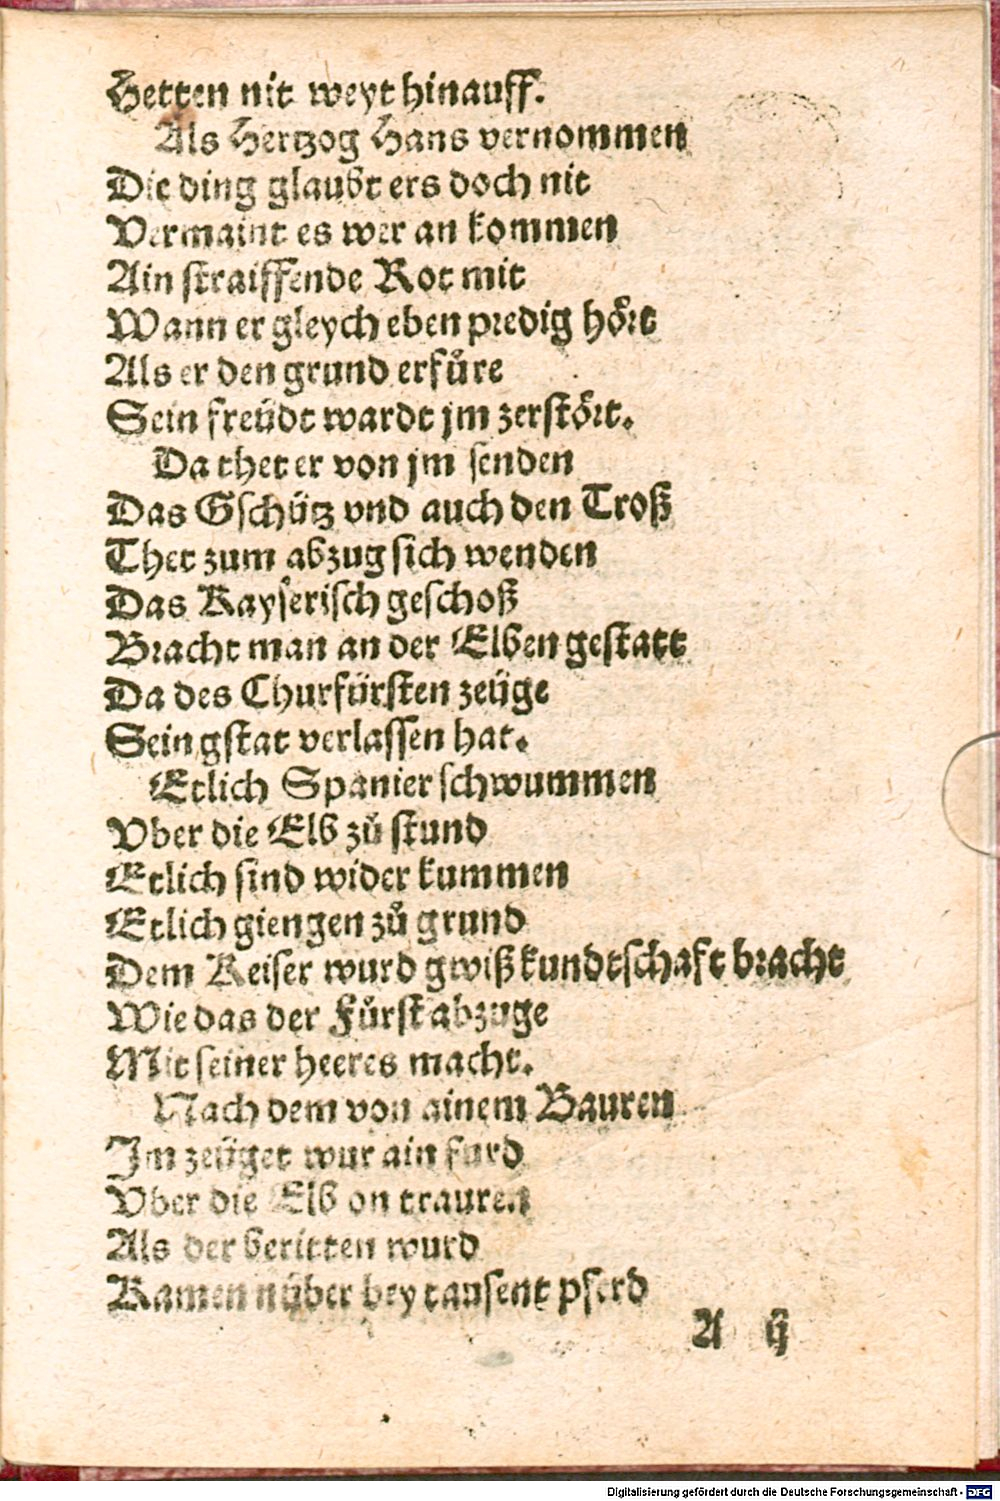 Hetten nit weyt hinauff.
Als Hertzog Hans vernommen
Die ding glaubt ers doch nit
Vermaint es wer an kommen
Ain straiffende Rot mit
Wann er gleych eben predig hört
Als er den grund erfůre
Sein freüdt wardt jm zerstört.
Da thet er von jm senden
Das Gschütz vnd auch den Troß
Thet zum abzug sich wenden
Das Kayserisch geschoß
Bracht man an der Elben gestatt
Da des Churfürsten zeüge
Sein gstat verlassen hat.
Etlich Spanier schwummen
Vber die Elb zů stund
Etlich sind wider kummen
Etlich giengen zů grund
Dem Keiser wurd gwiß kundtschaft bracht
Wie das der Fürst abzuge
Mit seiner heeres macht.
Nach dem von ainem Bauren
Im zeüget wur ain furd
Vber die Elb on trauren
Als der beritten wurd
Kamen nüber bey tausent pferd
A ij
Digitalisierung gefördert durch die Deutsche Forschungsgemeinschaft - DFG